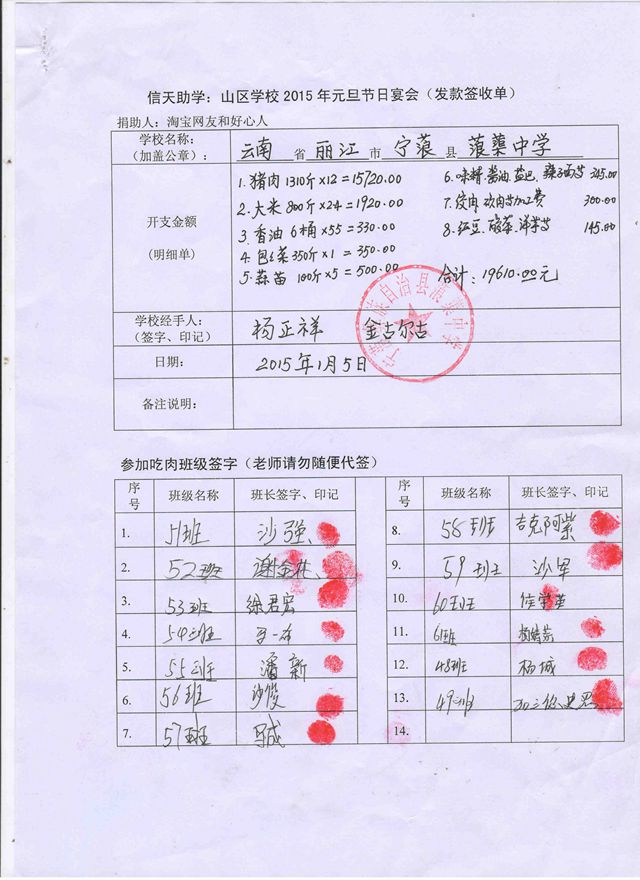 信天助学：山区学校 2015 年元旦节日宴会（发款签收单）
捐助人：淘宝网友和好心人
学校名称：
（加盖公章）：
云南 省 丽江 市 宁蒗 县 蒗蕖中学
开支金额
（明细单）
1.猪肉 1310斤×12=15720.00
2.大米 800斤×24=1920.00
3.香油 6桶×55=330.00
4.包谷菜 350斤×1=350.00
5.蒜苗 100斤×5=500.00
6.味精.酱油.盐巴.辣子面等 345.00
7.绞肉.砍肉等加工费 300.00
8.红豆.酸菜.洋芋等 145.00
合计：19610.00元
学校经手人：
（签字、印记）
杨正祥 金古尔古
日期：
2015年1月5日
备注说明：
参加吃肉班级签字（老师请勿随便代签）
序号 班级名称 班长签字、印记
1. 51班 沙强
2. 52班 谢金林
3. 53班 徐君宏
4. 54班
5. 55班 潘新
6. 56班 沙俊
7. 57班 马成
序号 班级名称 班长签字、印记
8. 58班 吉克阿紫
9. 59班 沙军
10. 60班
11. 61班
12. 48班 杨城
13. 49班
14.